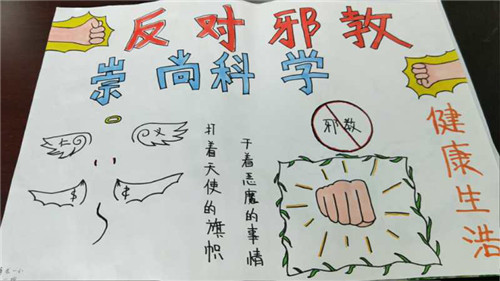 反对邪教
崇尚科学
仁 义
打着天使的旗帜
干着恶魔的事情
邪教
健康生活